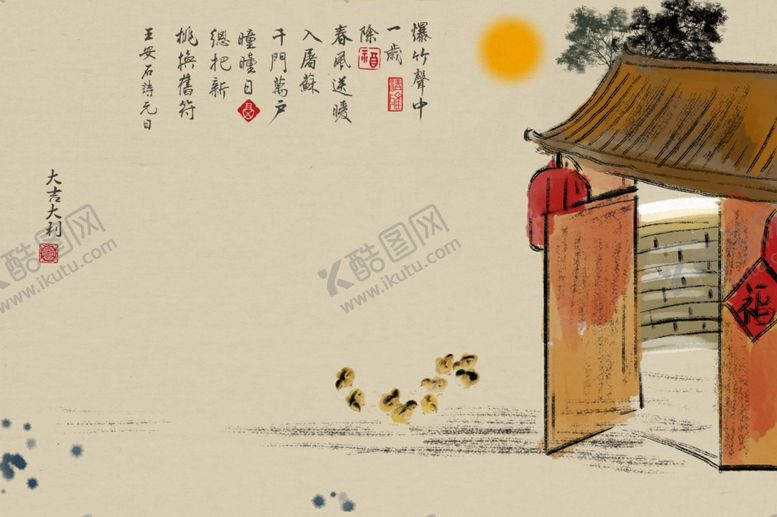 爆竹聲中
一歲
除
春風送暖
入屠蘇
千門萬戶
曈曈日
總把新
桃換舊符
王安石詩元日
大吉大利
福
酷图网
www.ikutu.com
酷图网
www.ikutu.com
酷图网
www.ikutu.com